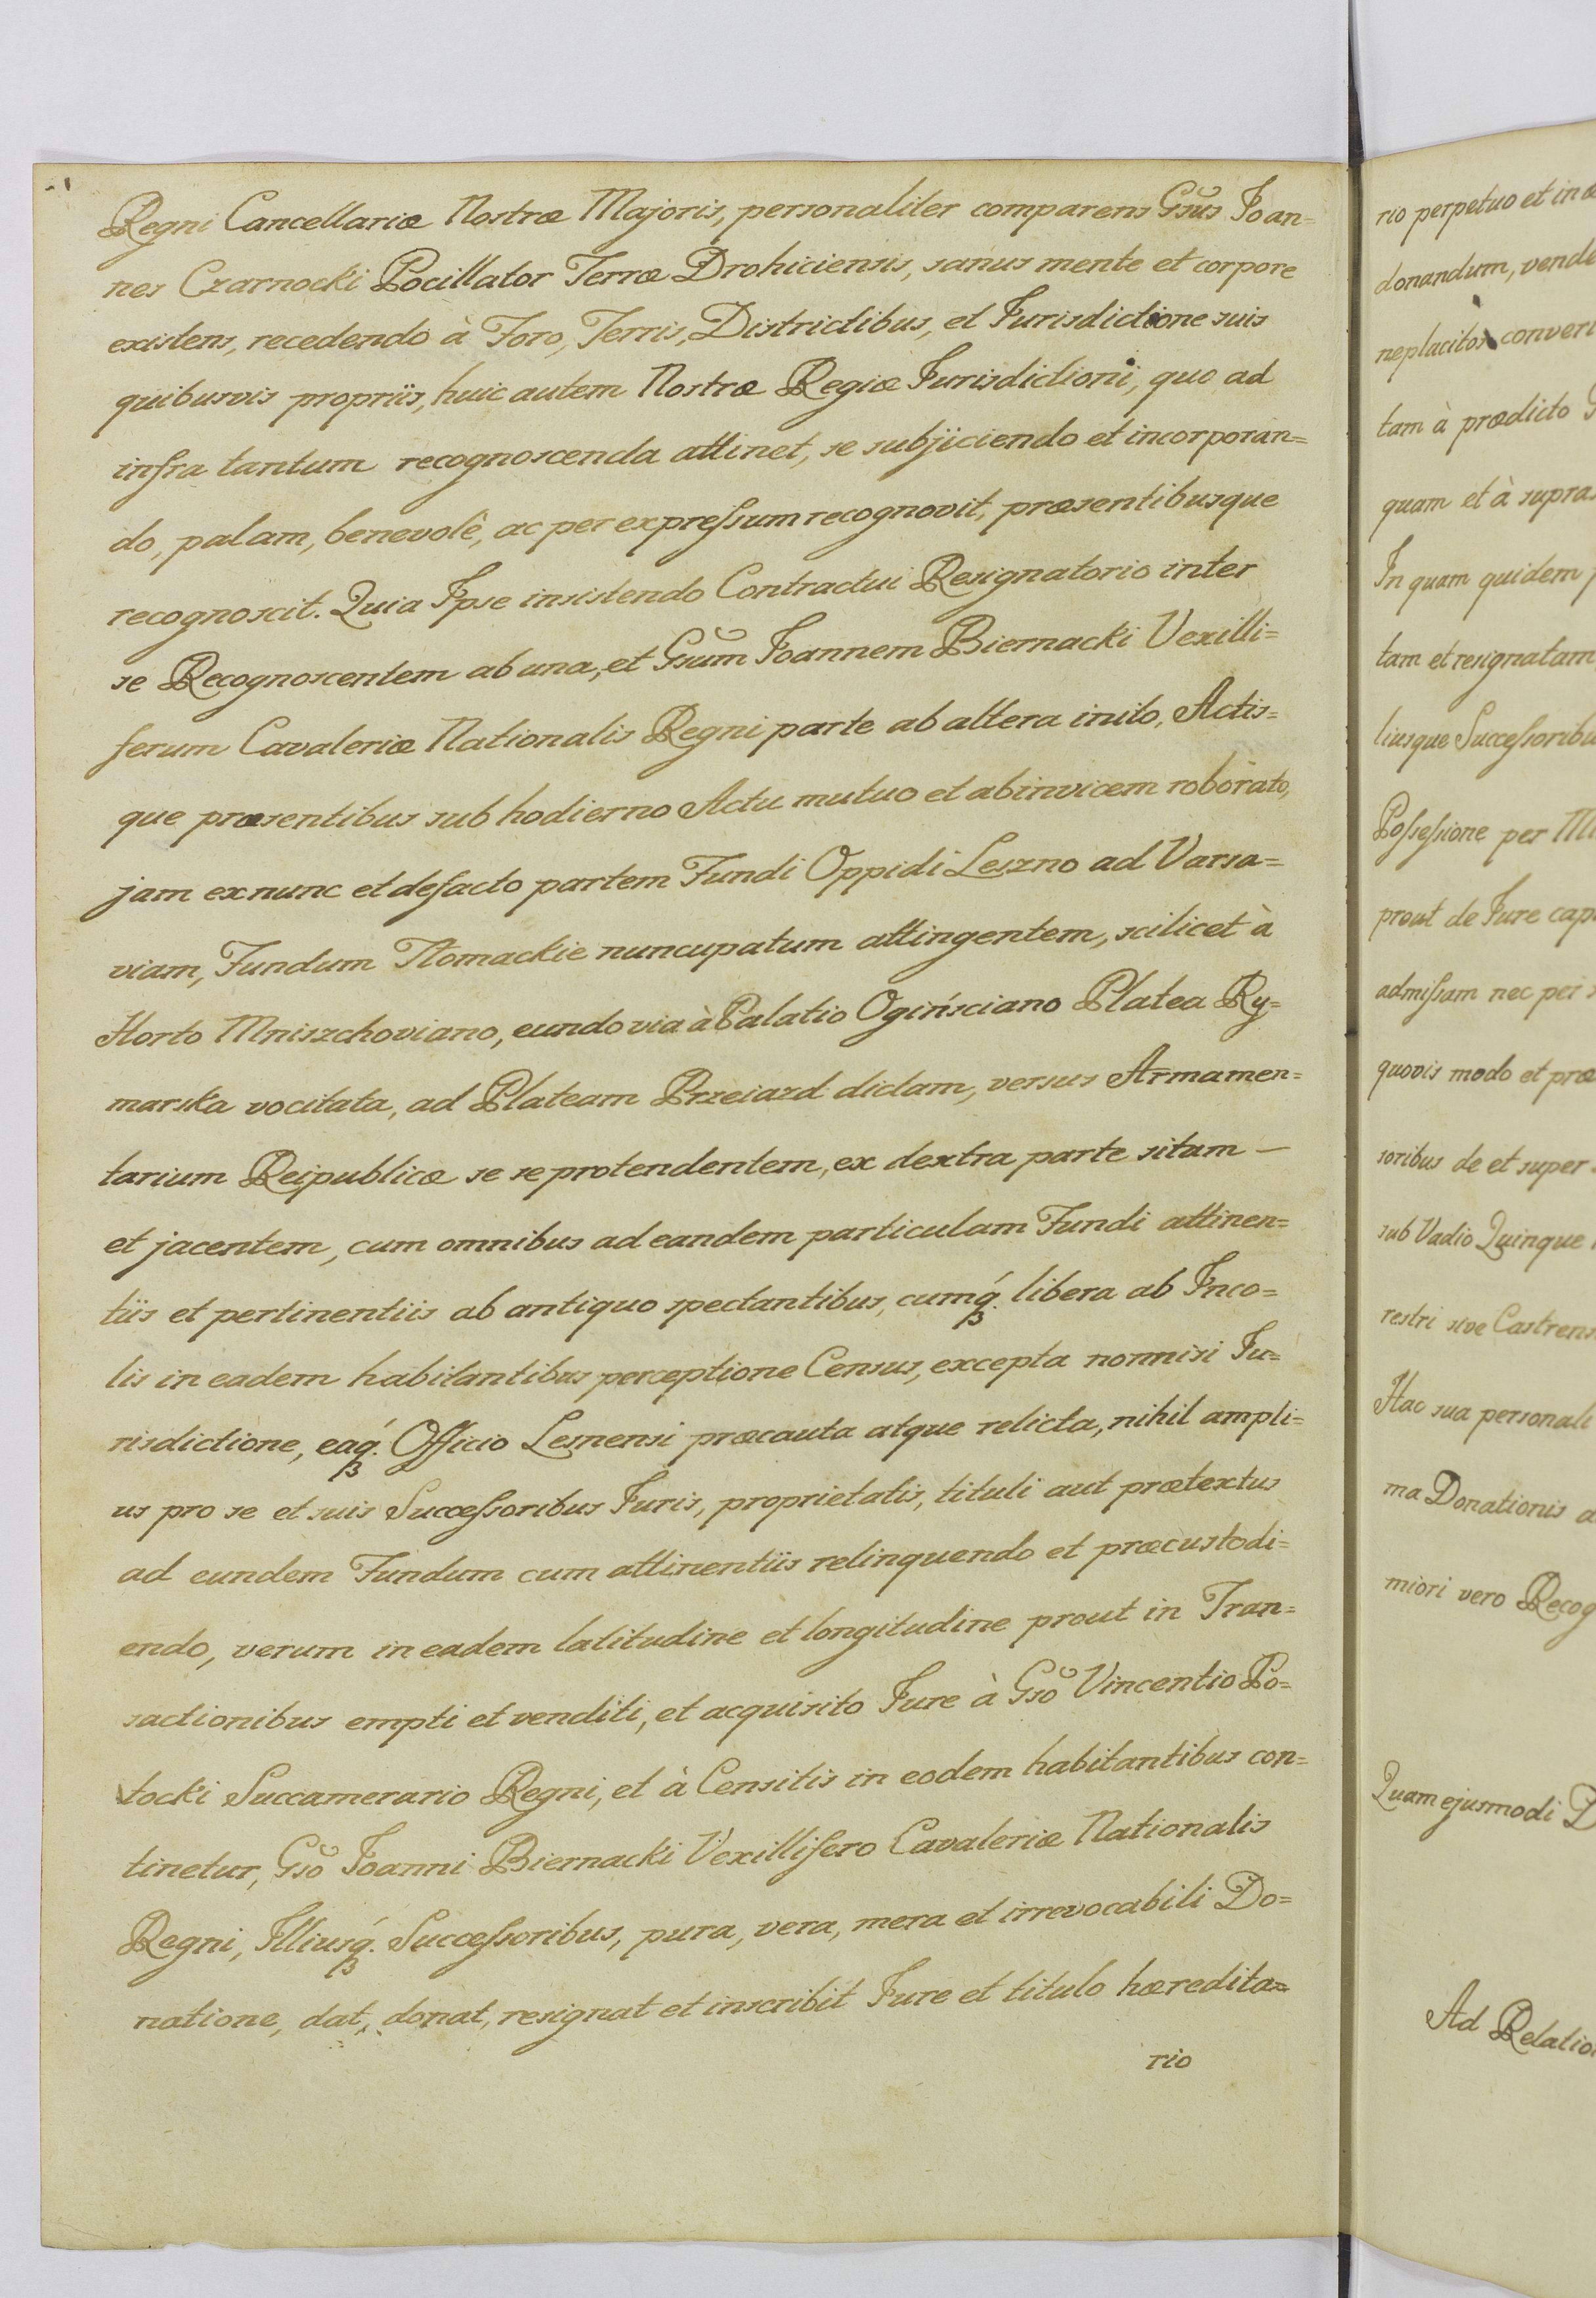 Regni Cancellariæ Nostræ Majoris, personaliter comparens Gsus Joan=
nes Czarnocki Pocillator Terræ Drohiciensis, sanus mente et corpore
existens, recedendo à Foro, Terris, Districtibus, et Jurisdictione suis
quibusvis propriis, huic autem Nostræ Regiæ Jurisdictioni, quo ad
infra tantum recognoscenda attinet, se subjiciendo et incorporan=
do, palam, benevolè, ac per expreſsum recognovit, præsentibusque
recognoscit. Quia Ipse insistendo Contractui Resignatorio inter
se Recognoscentem ab una, et Gsum Joannem Biernacki Vexilli=
ferum Cavaleriæ Nationalis Regni parte ab altera inito, Actis=
que præsentibus sub hodierno Actu mutuo et abinvicem roborato,
jam ex nunc et defacto partem Fundi Oppidi Leszno ad Varsa=
viam, Fundum Tłomackie nuncupatum attingentem, scilicet à
Horto Mniszchoviano, eundo via à Palatio Ogińsciano Platea Ry=
marska vocitata, ad Plateam Przeiazd dictam, versus Armamen=
tarium Reipublicæ se se protendentem, ex dextra parte sitam —
et jacentem, cum omnibus ad eandem particulam Fundi attinen=
tiis et pertinentiis ab antiquo spectantibus, cumq́ꝫ. libera ab Inco=
lis in eadem habitantibus perceptione Census, excepta nonnisi Ju=
risdictione, eaq́ꝫ. Officio Lesnensi præcauta atque relicta, nihil ampli=
us pro se et suis Succeſsoribus Juris, proprietatis, tituli aut prætextus
ad eundem Fundum cum attinentiis relinquendo et præcustodi=
endo, verum in eadem latitudine et longitudine prout in Tran=
sactionibus empti et venditi, et acquisito Jure à Gso Vincentio Po=
tocki Succamerario Regni, et à Censitis in eodem habitantibus con=
tinetur, Gso Joanni Biernacki Vexillifero Cavaleriæ Nationalis
Regni, Illiusq́ꝫ. Succeſsoribus, pura, vera, mera et irrevocabili Do=
natione, dat, donat, resignat et inscribit Jure et titulo hæredita=
rio
rio perpetuo et in
donandum,
neplacitos
tam à prædicto
quam et à
In quam quidem
tam et resignatam
liusque
Poſseſsione per
prout de Jure
admiſsam nec per
quovis modo et
soribus de et super
sub Vadio Quinque
restri sive
Hac sua
ma Donationis
miori vero
Quam ejusmodi
Ad